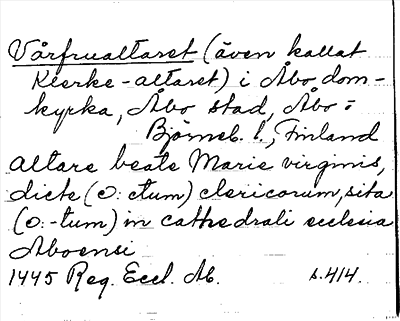 Vårfrualtaret (även kallat
Klerke-altaret) i Åbo dom-
kyrka, Åbo stad, Åbo-
Björneb. l., Finland
altare beate Marie virginis,
dicte (ɔ: ctum) clericorum, sita
(ɔ: -tum) in cathedrali ecclesia
Aboensi
1445 Reg. Eccl. Ab. s. 414.